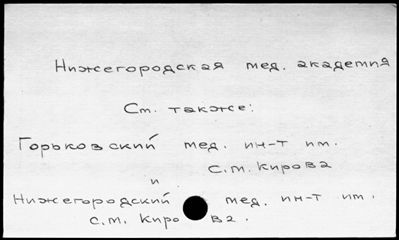 Нижегородская мед. академия
См. также:
Горьковский мед. ин-т им.
С.М. Кирова
и
Нижегородский мед. ин-т им.
С.М. Кирова.